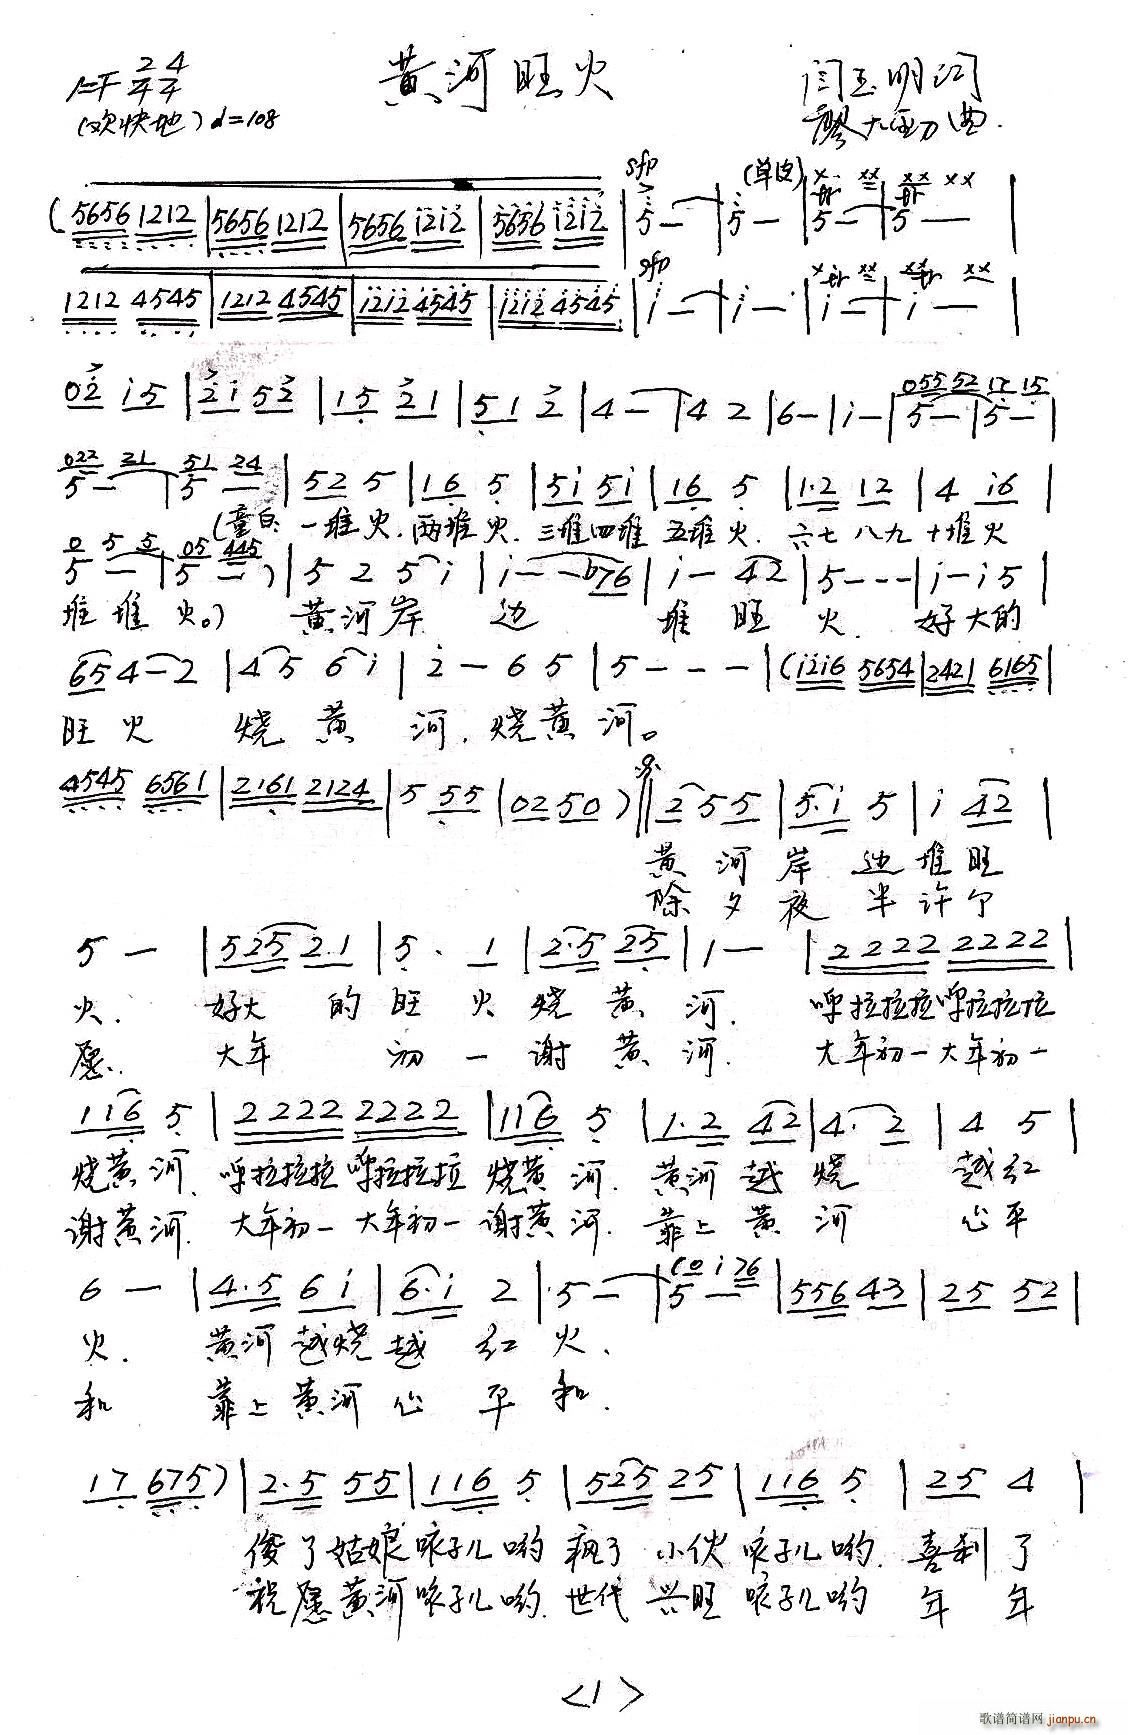 黄河旺火
1=F 2/4 4/4
闫玉明词
(欢快地) ♩=108
廖大勋曲.
sfp (单皮) x. xx xx xx
(5656 1212|5656 1212|5656 i2i2|5656 i2i2|5 —|5 —|5 —|5 —|
sfp x xx xx xx
1212 4545|1212 4545|i2i2 4545|i2i2 4545|i —|i —|i —|i —|
055 52 12 15
02 i5|2i 52|15 21|51 2|4 —|4 2|6 —|i —|5 —|5 —|
022 21 51 24
5 —|5 —|52 5|16 5|5i 5i|16 5|1·2 12|4 i6|
(童白: 一堆火.两堆火.三堆四堆 五堆火. 六七八九十堆火
0 5 5 05 445
5 —|5 —)|5 2 5 i|i — — b76|i — 42|5 - - -|i — i 5|
堆堆火。) 黄河岸 边 堆旺火. 好大的
65 4 — 2|4 5 6 i|2 — 6 5|5 - - -|(i2i6 5654|2421 6165|
旺火 烧黄河.烧黄河。
4545 6561|2161 2124|5 55|02 50)‖2 55|5·i 5|i 42|
黄河岸边堆旺
除夕夜半许个
5 —|525 2 1|5 · 1|2·5 25|1 —|2222 2222|
火. 好大的旺火烧黄河. 呼拉拉拉呼拉拉拉
愿. 大年 初一谢黄河. 大年初一大年初一
116 5|2222 2222|116 5|1·2 42|4· 2|4 5|
烧黄河.呼拉拉拉呼拉拉拉烧黄河.黄河越烧 越红
谢黄河.大年初一大年初一谢黄河.靠上黄河 心平
(0 i 76
6 —|4·5 6i|6·i 2|5 —|5 —|556 43|25 52|
火. 黄河越烧越红火、
和 靠上黄河心平和.
17 675)|2·5 55|116 5|525 25|116 5|25 4|
俊了姑娘咏孑儿哟疯了小伙咏孑儿哟.喜利了
祝愿黄河咏孑儿哟.世代兴旺咏孑儿哟 年年
<1>
歌谱简谱网
jianpu.cn